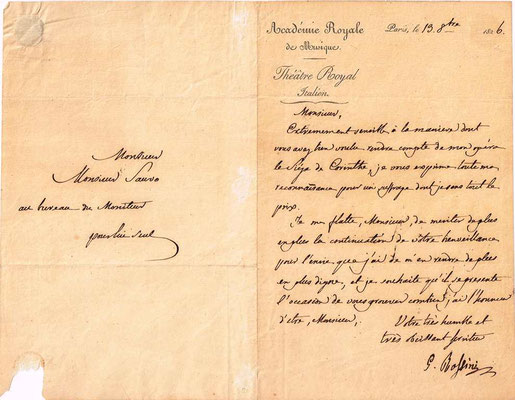 Monsieur
Monsieur Sauvo
au bureau du Moniteur
pour lui seul
Académie Royale
de Musique.
Théâtre Royal
Italien.
Paris, le 13 8bre 1826.
Monsieur,
Extremement sensible à la maniere dont
vous avez bien voulu rendre compte de mon opéra
le Siége de Corinthe, je vous exprime toute ma
reconnaissance pour un suffrage dont je sens tout le
prix.
Je me flatte, Monsieur, de meriter de plus
en plus la continuation de votre bienveillance
pour l'envie que j'ai de m'en rendre de plus
en plus digne, et je souhaite qu'il se presente
l'occasion de vous prouver combien j'ai l'honneur
d'etre, Monsieur,
Votre très humble et
très obeissant serviteur
G. Rossini